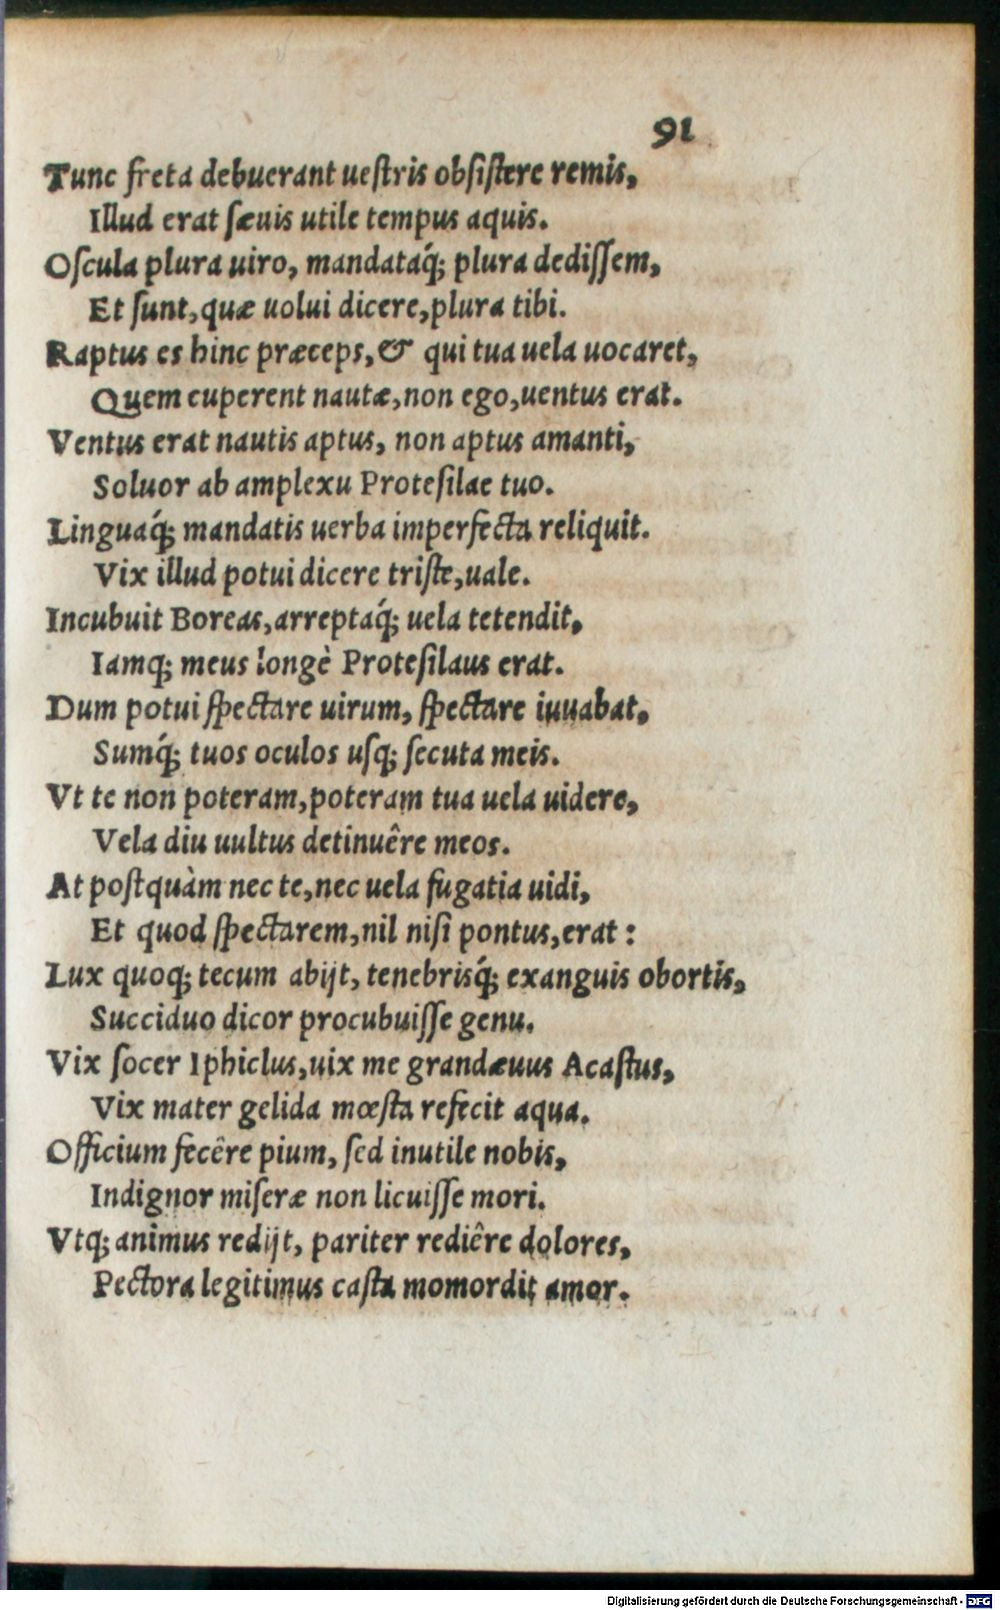 91
Tunc freta debuerant uestris obsistere remis,
Illud erat sæuis utile tempus aquis.
Oscula plura uiro, mandataq́; plura dedissem,
Et sunt, quæ uolui dicere, plura tibi.
Raptus es hinc præceps, & qui tua uela uocaret,
Quem cuperent nautæ, non ego, uentus erat.
Ventus erat nautis aptus, non aptus amanti,
Soluor ab amplexu Protesilae tuo.
Linguaq́; mandatis uerba imperfecta reliquit.
Vix illud potui dicere triste, uale.
Incubuit Boreas, arreptaq́; uela tetendit,
Iamq; meus longè Protesilaus erat.
Dum potui spectare uirum, spectare iuuabat,
Sumq́; tuos oculos usq; secuta meis.
Vt te non poteram, poteram tua uela uidere,
Vela diu uultus detinuêre meos.
At postquàm nec te, nec uela fugatia uidi,
Et quod spectarem, nil nisi pontus, erat:
Lux quoq; tecum abijt, tenebrisq́; exanguis obortis,
Succiduo dicor procubuisse genu.
Vix socer Iphiclus, uix me grandæuus Acastus,
Vix mater gelida mœsta refecit aqua.
Officium fecêre pium, sed inutile nobis,
Indignor miseræ non licuisse mori.
Vtq; animus redijt, pariter rediêre dolores,
Pectora legitimus casta momordit amor.
Digitalisierung gefördert durch die Deutsche Forschungsgemeinschaft - DFG